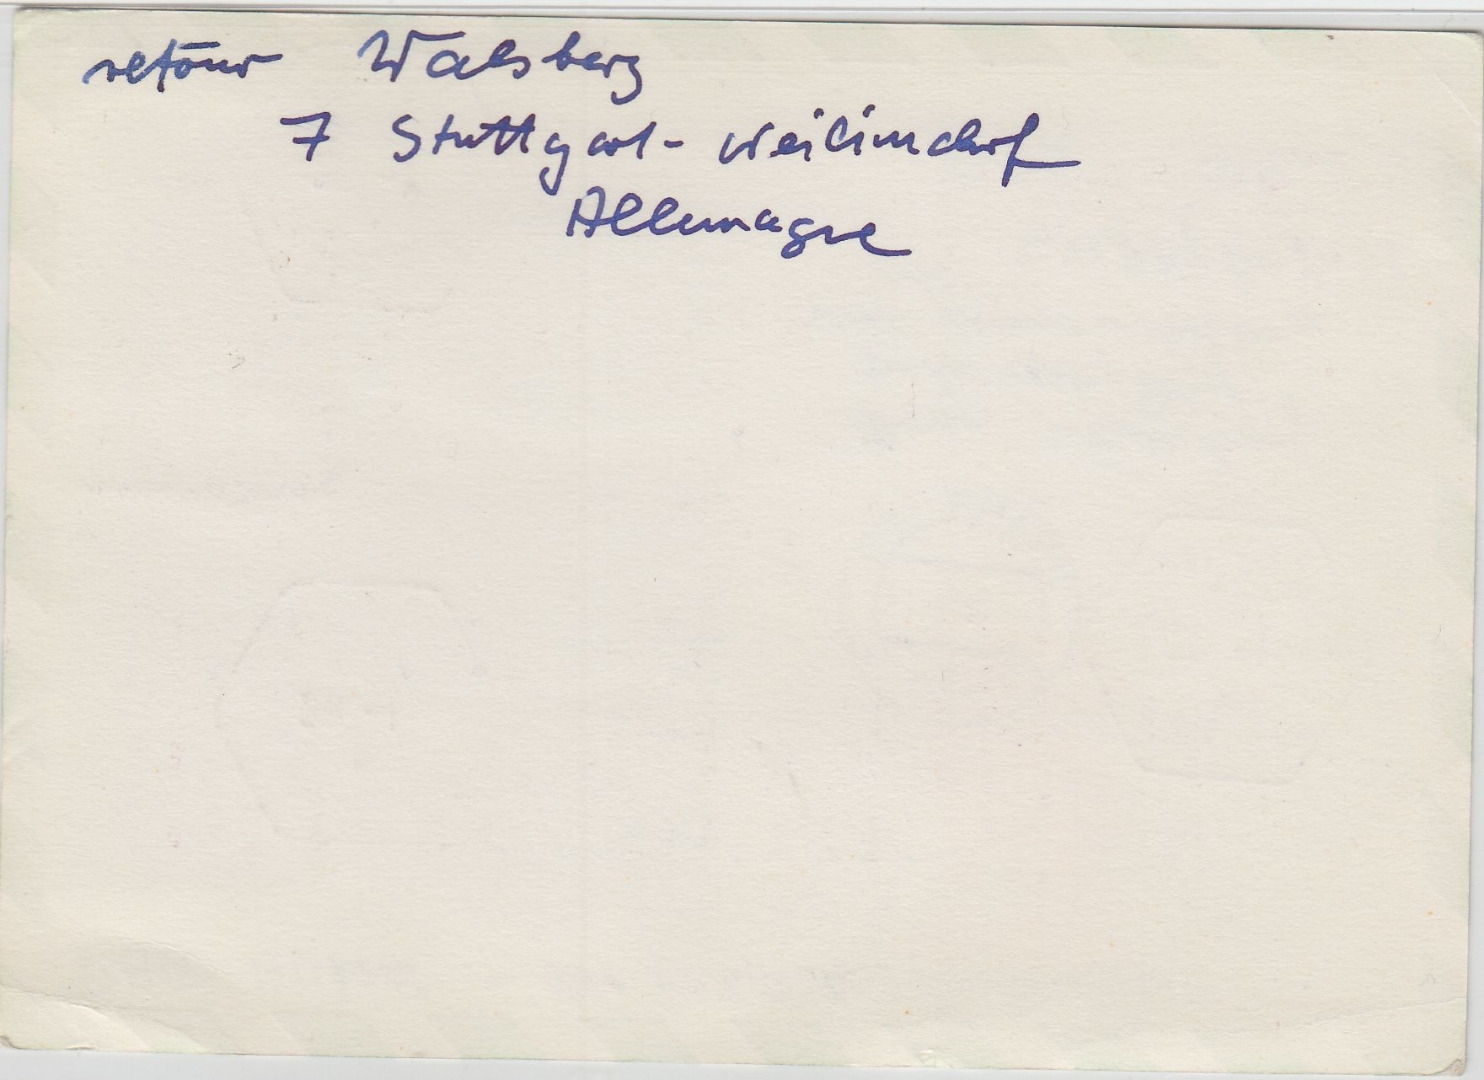 retour Walsberg
7 Stuttgart-Weilimdorf
Allemagne